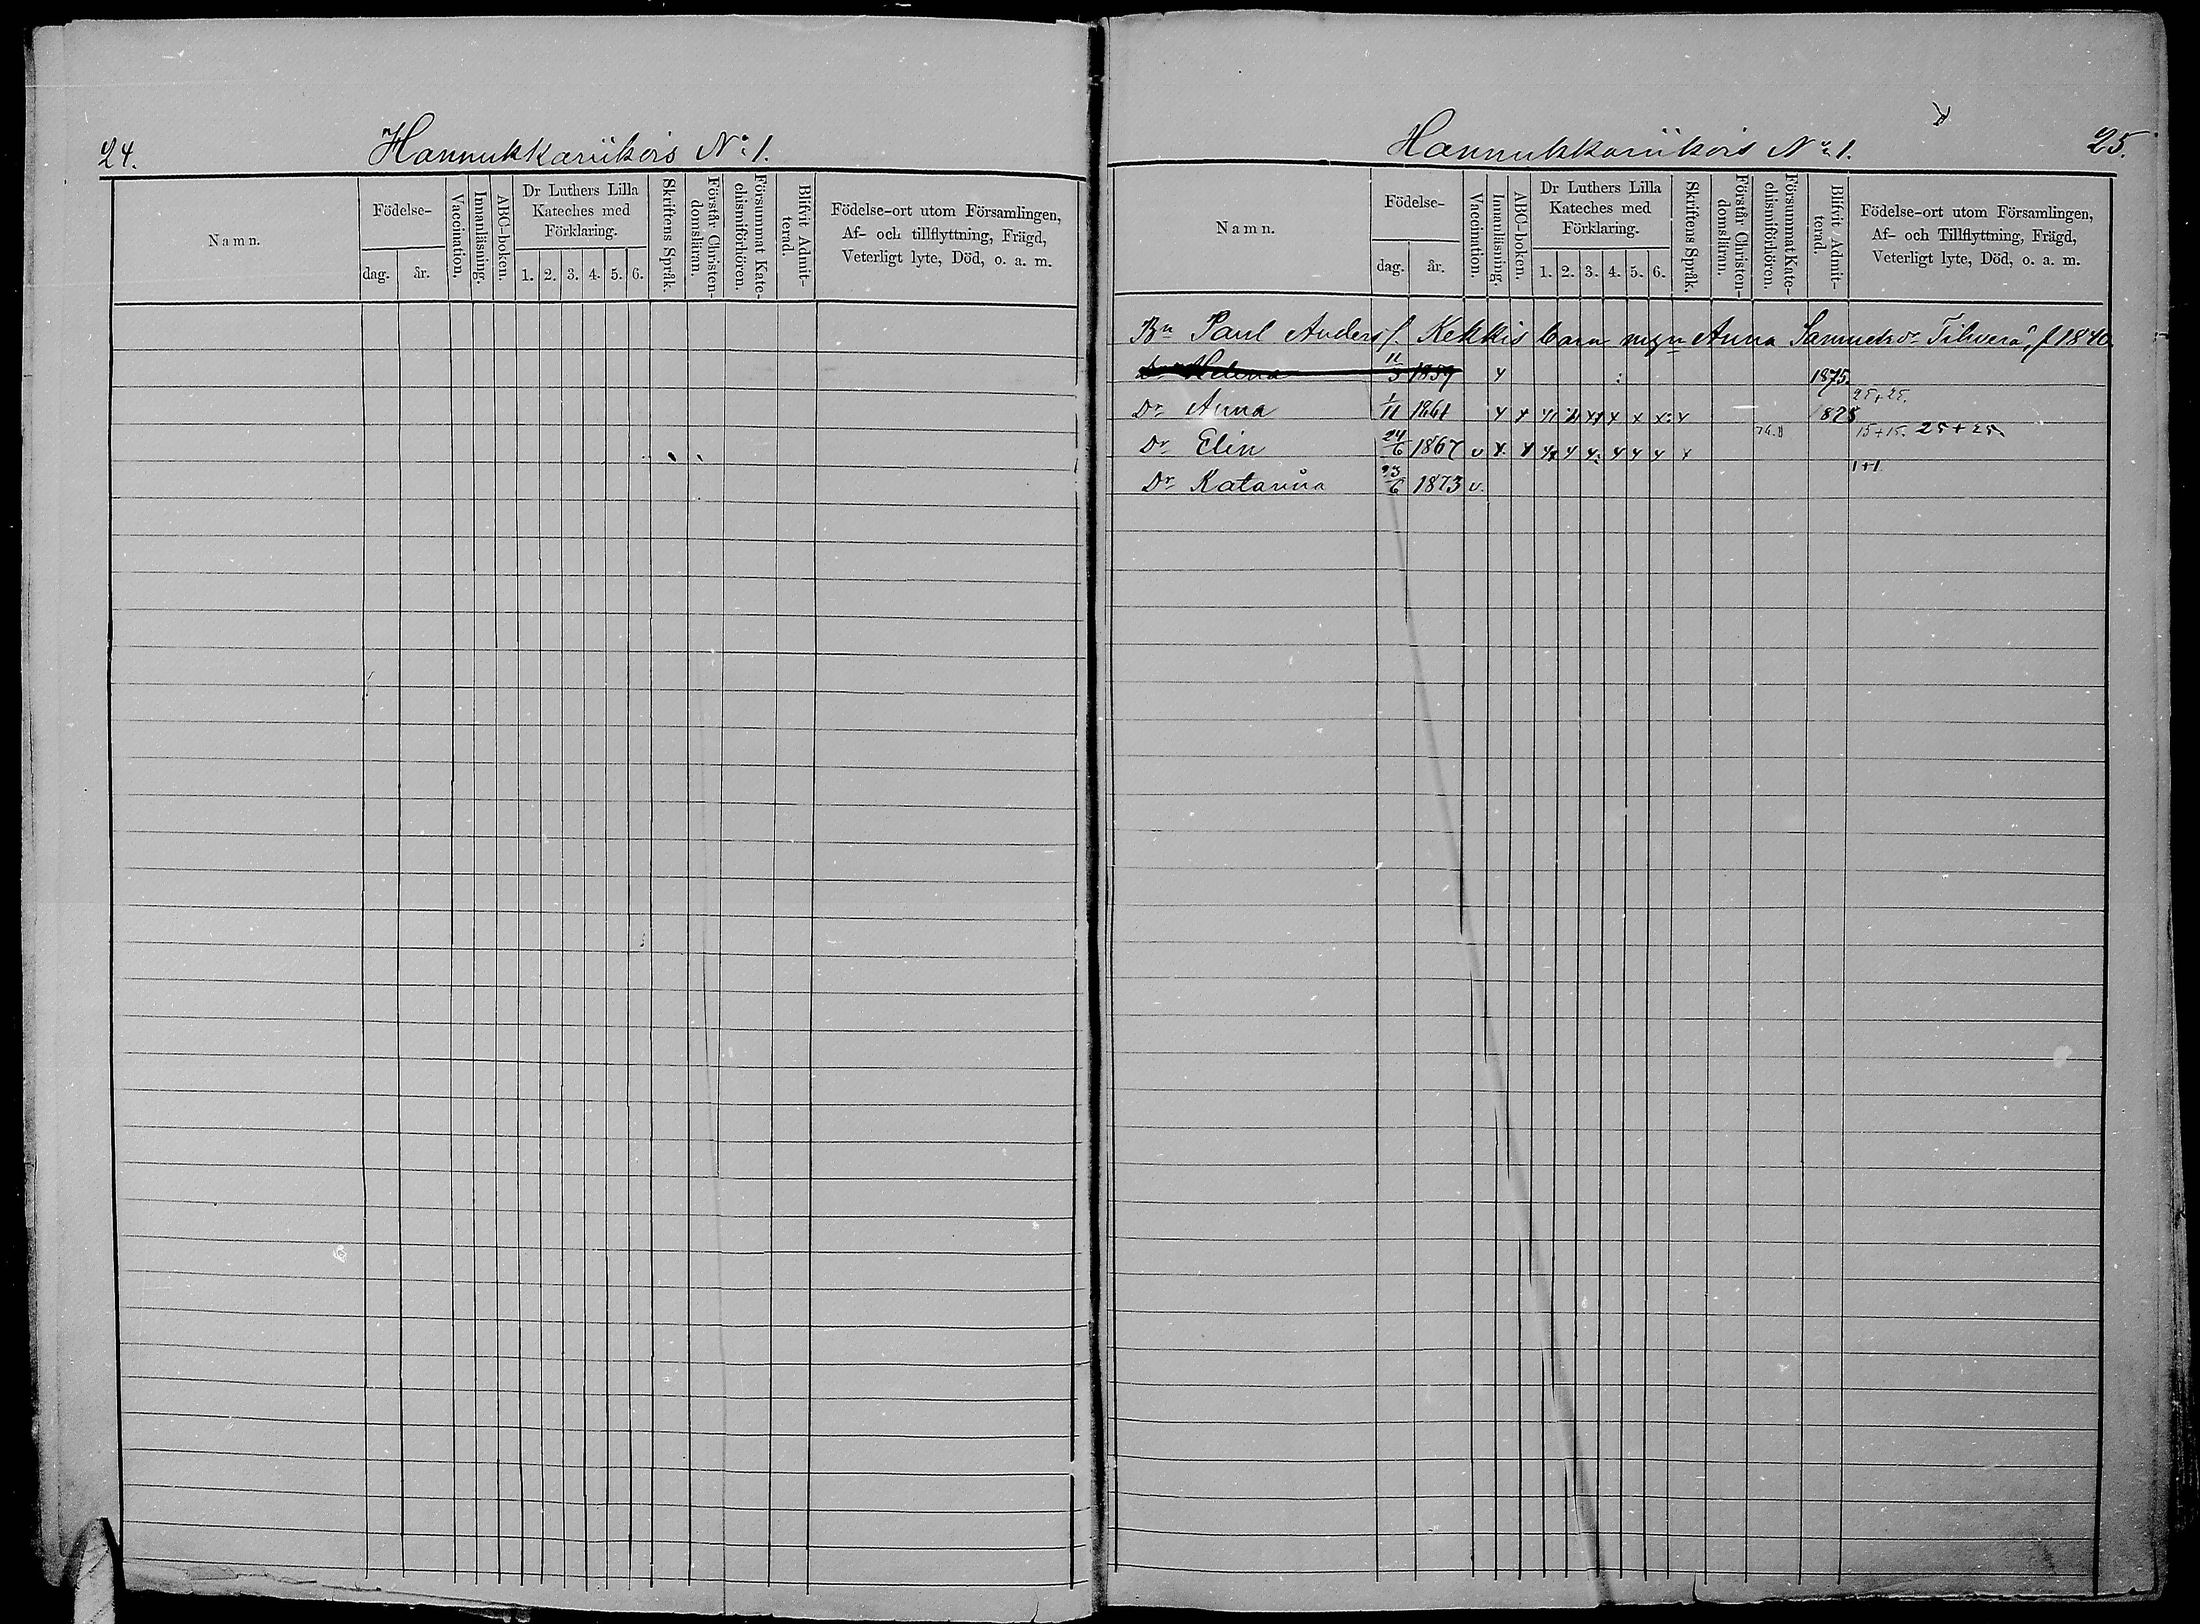 24.
Hannukkariikois No 1.
Namn.
Födelse-
dag. år.
Vaccination.
Innanläsning.
ABC-boken.
Dr Luthers Lilla
Kateches med
Förklaring.
1. 2. 3. 4. 5. 6.
Skriftens Språk.
Förstår Christen-
domsläran.
Försummat Kate-
chismiförhören.
Blifvit Admit-
terad.
Födelse-ort utom Församlingen,
Af- och tillflyttning, Frägd,
Veterligt lyte, Död, o. a. m.
Hannukkariikois No 1.
25.
Namn.
Födelse-
dag. år.
Vaccination.
Innanläsning.
ABC-boken.
Dr Luthers Lilla
Kateches med
Förklaring.
1. 2. 3. 4. 5. 6.
Skriftens Språk.
Förstår Christen-
domsläran.
Försummat Kate-
chismiförhören.
Blifvit Admit-
terad.
Födelse-ort utom Församlingen,
Af- och Tillflyttning, Frägd,
Veterligt lyte, Död, o. a. m.
Bn Paul Anders f. Kekkis barn Anna
Dr Helena 11/3 1859 x 1875
25+25.
Dr Anna 1/11 1861 x x x x x x x x x 1878
15+15. 25+25.
Dr Elin 24/6 1867 v x x x x x x x x x
1+1
Dr Katarina 23/6 1873 v.